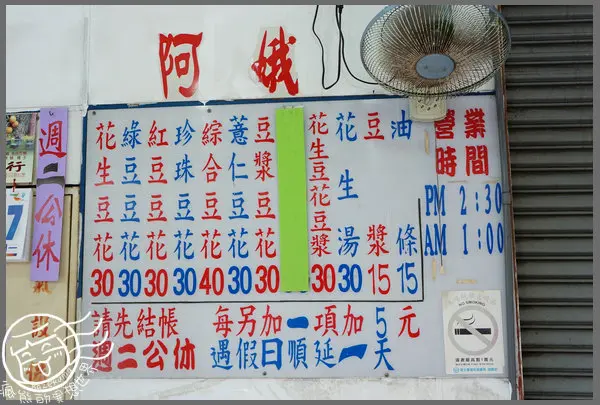 阿娥
花生豆花30
綠豆豆花30
紅豆豆花30
珍珠豆花30
綜合豆花40
薏仁豆花30
豆漿豆花30
花生豆花豆漿30
花生湯30
豆漿15
油條15
營業時間
PM 2:30
AM 1:00
請先結帳 每另加一項加5元
週二公休 遇假日順延一天
週一公休
行
7
NO SMOKING